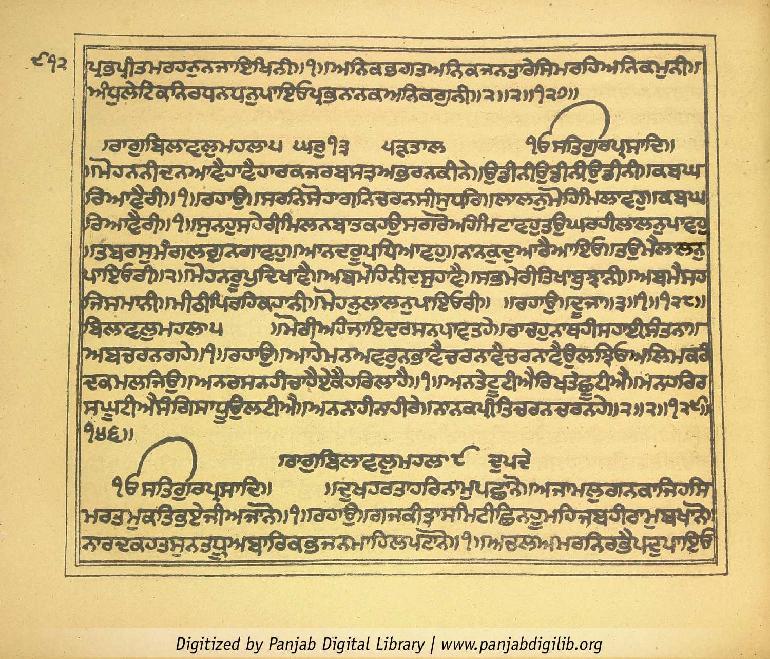 ੯੧੨
ਪ੍ਰਭਪ੍ਰੀਤਮਰਹਨੁਨਜਾਇਖਿਨੀ॥੧॥ਅਨਿਕਭਗਤਅਨਿਕਜਨਤਾਰੇਸਿਮਰਹਿਅਨਿਕਮੁਨੀ॥
ਅੰਧੁਲੇਟਿਕਨਿਰਧਨਧਨੁਪਾਇਓਪ੍ਰਭਨਾਨਕਅਨਿਕਗੁਨੀ॥੨॥੨॥੧੨੭॥
ਰਾਗੁਬਿਲਾਵਲੁਮਹਲਾ੫ ਘਰੁ੧੩ ਪੜਤਾਲ ੴਸਤਿਗੁਰਪ੍ਰਸਾਦਿ॥
॥ਮੋਹਨਨੀਦਨਆਵੈਹਾਵੈਹਾਰਕਜਰਬਸਤ੍ਰਅਭਰਨਕੀਨੇ॥ਉਡੀਨੀਉਡੀਨੀਉਡੀਨੀ॥ਕਬਘ
ਰਿਆਵੈਰੀ॥੧॥ਰਹਾਉ॥ਸਰਨਿਸੋਹਾਗਨਿਚਰਨਸੀਸੁਧਰਿ॥ਲਾਲਨੁਮੋਹਿਮਿਲਾਵਹੁ॥ਕਬਘ
ਰਿਆਵੈਰੀ॥੧॥ਸੁਨਹੁਸਹੇਰੀਮਿਲਨਬਾਤਕਹਉਸਗਰੋਅਹੰਮਿਟਾਵਹੁਤਉਘਰਹੀਲਾਲਨੁਪਾਵਹੁ
॥ਤਬਰਸਮੰਗਲਗੁਨਗਾਵਹੁ॥ਆਨਦਰੂਪਧਿਆਵਹੁ॥ਨਾਨਕਦੁਆਰੈਆਇਓ॥ਤਉਮੈਲਾਲਨੁ
ਪਾਇਓਰੀ॥੨॥ਮੋਹਨਰੂਪੁਦਿਖਾਵੈ॥ਅਬਮੋਹਿਨੀਦਸੁਹਾਵੈ॥ਸਭਮੇਰੀਤਿਖਾਬੁਝਾਨੀ॥ਅਬਮੈਸਹ
ਜਿਸਮਾਨੀ॥ਮੀਠੀਪਿਰਹਿਕਹਾਨੀ॥ਮੋਹਨੁਲਾਲਨੁਪਾਇਓਰੀ॥ ॥ਰਹਾਉ॥ਦੂਜਾ॥੩॥੧॥੧੨੮॥
ਬਿਲਾਵਲੁਮਹਲਾ੫ ॥ਮੋਰੀਅਹੰਜਾਇਦਰਸਨਪਾਵਤਹੇ॥ਰਾਚਹੁਨਾਥਹੀਸਹਾਈਸੰਤਨਾ॥
ਅਬਚਰਨਗਹੇ॥੧॥ਰਹਾਉ॥ਆਹੇਮਨਅਵਰੁਨਭਾਵੈਚਰਨਾਵੈਚਰਨਾਵੈਉਲਝਿਓਅਲਿਮਕਰੰ
ਦਕਮਲਜਿਉ॥ਅਨਰਸਨਹੀਚਾਹੈਏਕੈਹਰਿਲਾਹੈ॥੧॥ਅਨਤੇਟੂਟੀਐਰਿਖਤੇਛੂਟੀਐ॥ਮਨਹਰਿਰ
ਸਘੂਟੀਐਸੰਗਿਸਾਧੂਉਲਟੀਐ॥ਅਨਨਾਹੀਨਾਹੀਰੇ॥ਨਾਨਕਪ੍ਰੀਤਿਚਰਨਚਰਨਹੇ॥੨॥੨॥੧੨੯॥
੧੫੬॥
ਰਾਗੁਬਿਲਾਵਲੁਮਹਲਾ੯ ਦੁਪਦੇ
ੴਸਤਿਗੁਰਪ੍ਰਸਾਦਿ॥ ॥ਦੁਖਹਰਤਾਹਰਿਨਾਮੁਪਛਾਨੋ॥ਅਜਾਮਲੁਗਨਕਾਜਿਹਸਿ
ਮਰਤਮੁਕਤਿਭਏਜੀਅਜਾਨੋ॥੧॥ਰਹਾਉ॥ਗਜਕੀਤ੍ਰਾਸਮਿਟੀਛਿਨਹੂਮਹਿਜਬਹੀਰਾਮੁਬਖਾਨੋ॥
ਨਾਰਦਕਹਤਸੁਨਤਧ੍ਰੂਅਬਾਰਿਕਭਜਨਮਾਹਿਲਪਟਾਨੋ॥੧॥ਅਚਲਅਮਰਨਿਰਭੈਪਦੁਪਾਇਓ
Digitized by Panjab Digital Library | www.panjabdigilib.org